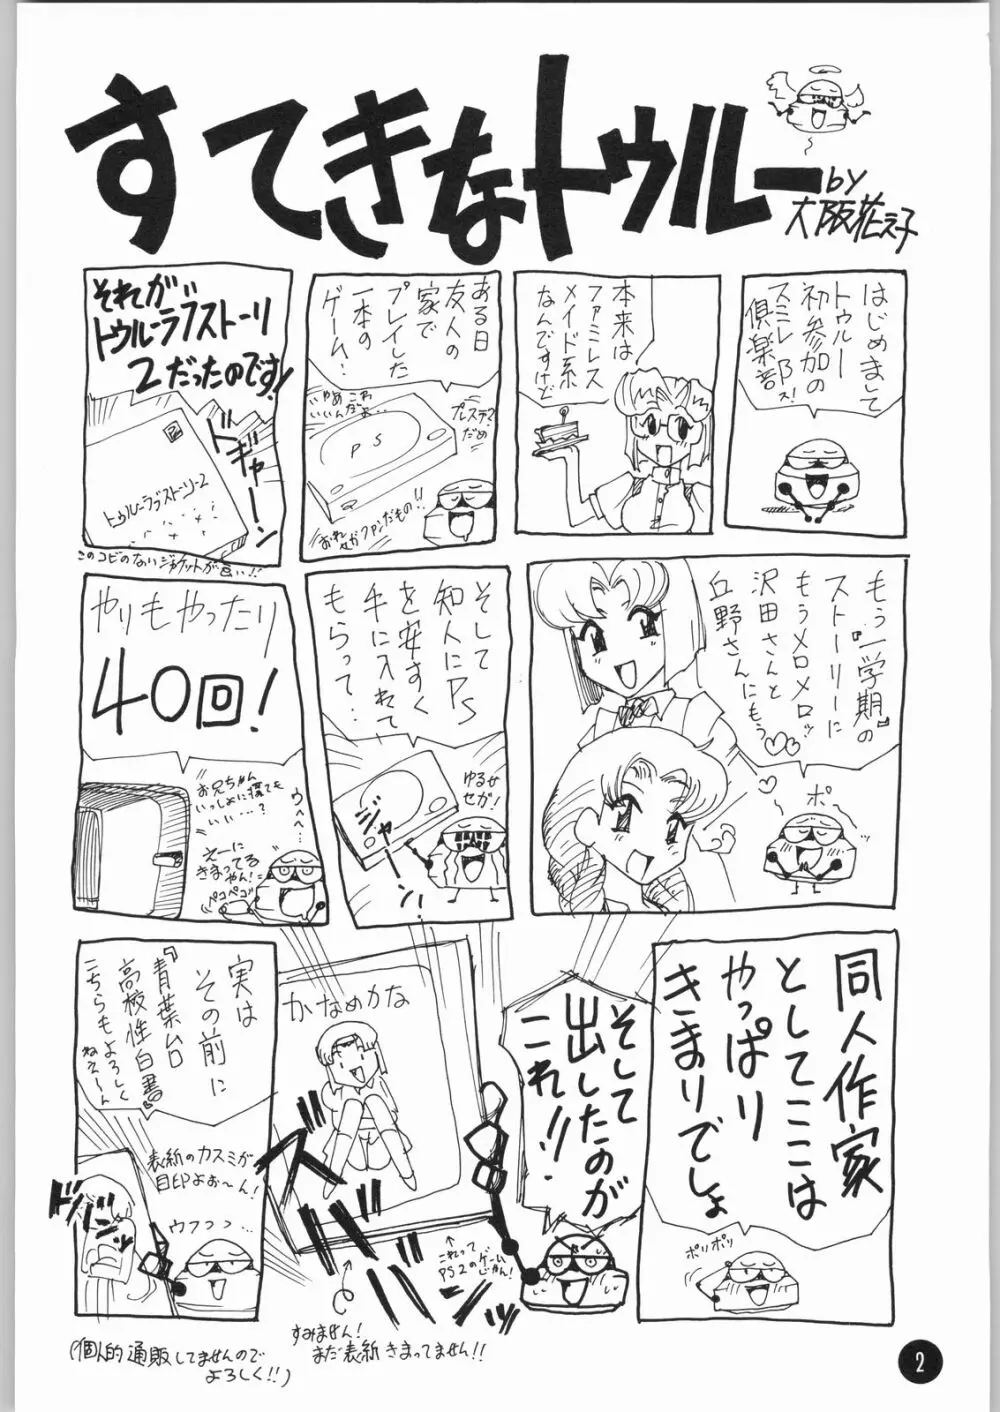 すてきなトゥルー
by
大阪花え子
はじめまして
トゥルー
初参加の
スミレ
倶楽部
本来は
ファミレス
メイド系
なんですけど
ある日
友人の
家で
プレイした
一本の
ゲーム…
いやめ これ
いいんだよ…
プレステ2
だめ
PS
おれ
セガファンだもの!!
それが
トゥルーラブストーリー
2だったのです!
ドギャーン
トゥルーラブストーリー2
このコピのないジャケットが良い!!
もう『一学期』の
ストーリーに
もうメロメロッ
沢田さんと
丘野さんにもう
ポ
そして
知人にPS
を安すく
手に入れて
もらって…
ゆるせ
セガ!
ジャーン!
やりもやったり
40回!
お兄ちゃん
いっしょに寝ても
いい…?
ウへへ…
えーに
きまってる
やん!
ペコペコ
同人作家
としてここは
やっぱり
きまりでしょ
ポリポリ
そして
出したのが
これ!!
かなめかな
ズババーン
↑
これって
PS2のゲーム
じゃん!
すみません!
まだ表紙きまってません!!
実は
その前に
『青葉台
高校性白書』
こちらもよろしく
ねえ〜ん
表紙のカスミが
目印よお〜ん!
ウフっっ…
(個人的通販してませんので
よろしく!!)
2